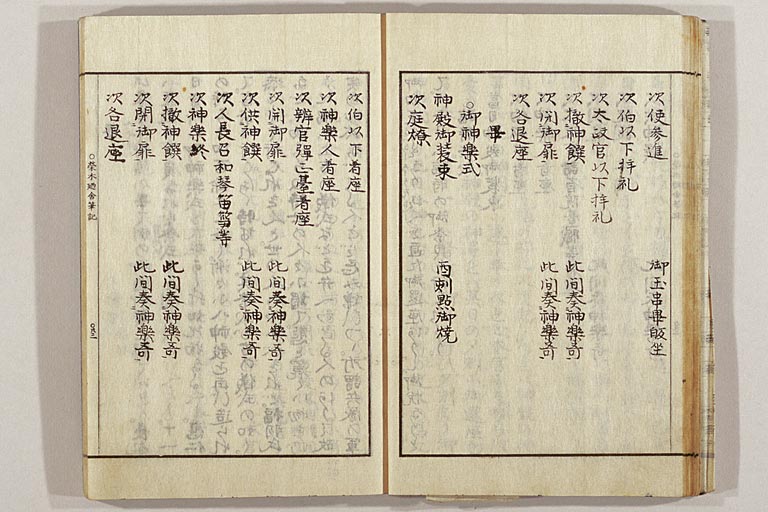 次使参進　御玉串畢皈坐
次伯以下拝礼
次太政官以下拝礼
次撤神饌　此间奏神樂哥
次闭御扉　此间奏神樂哥
次各退座
畢
○御神樂式
神殿御装束　酉刺點御燒
次庭燎
次伯以下着座
次神樂人着座
次辨官彈正臺着座
次開御扉　此间奏神樂哥
次供神饌　此间奏神樂哥
次人長召和琴笛等
次神樂終
次撤神饌　此间奏神樂哥
次閉御扉　此间奏神樂哥
次各退座